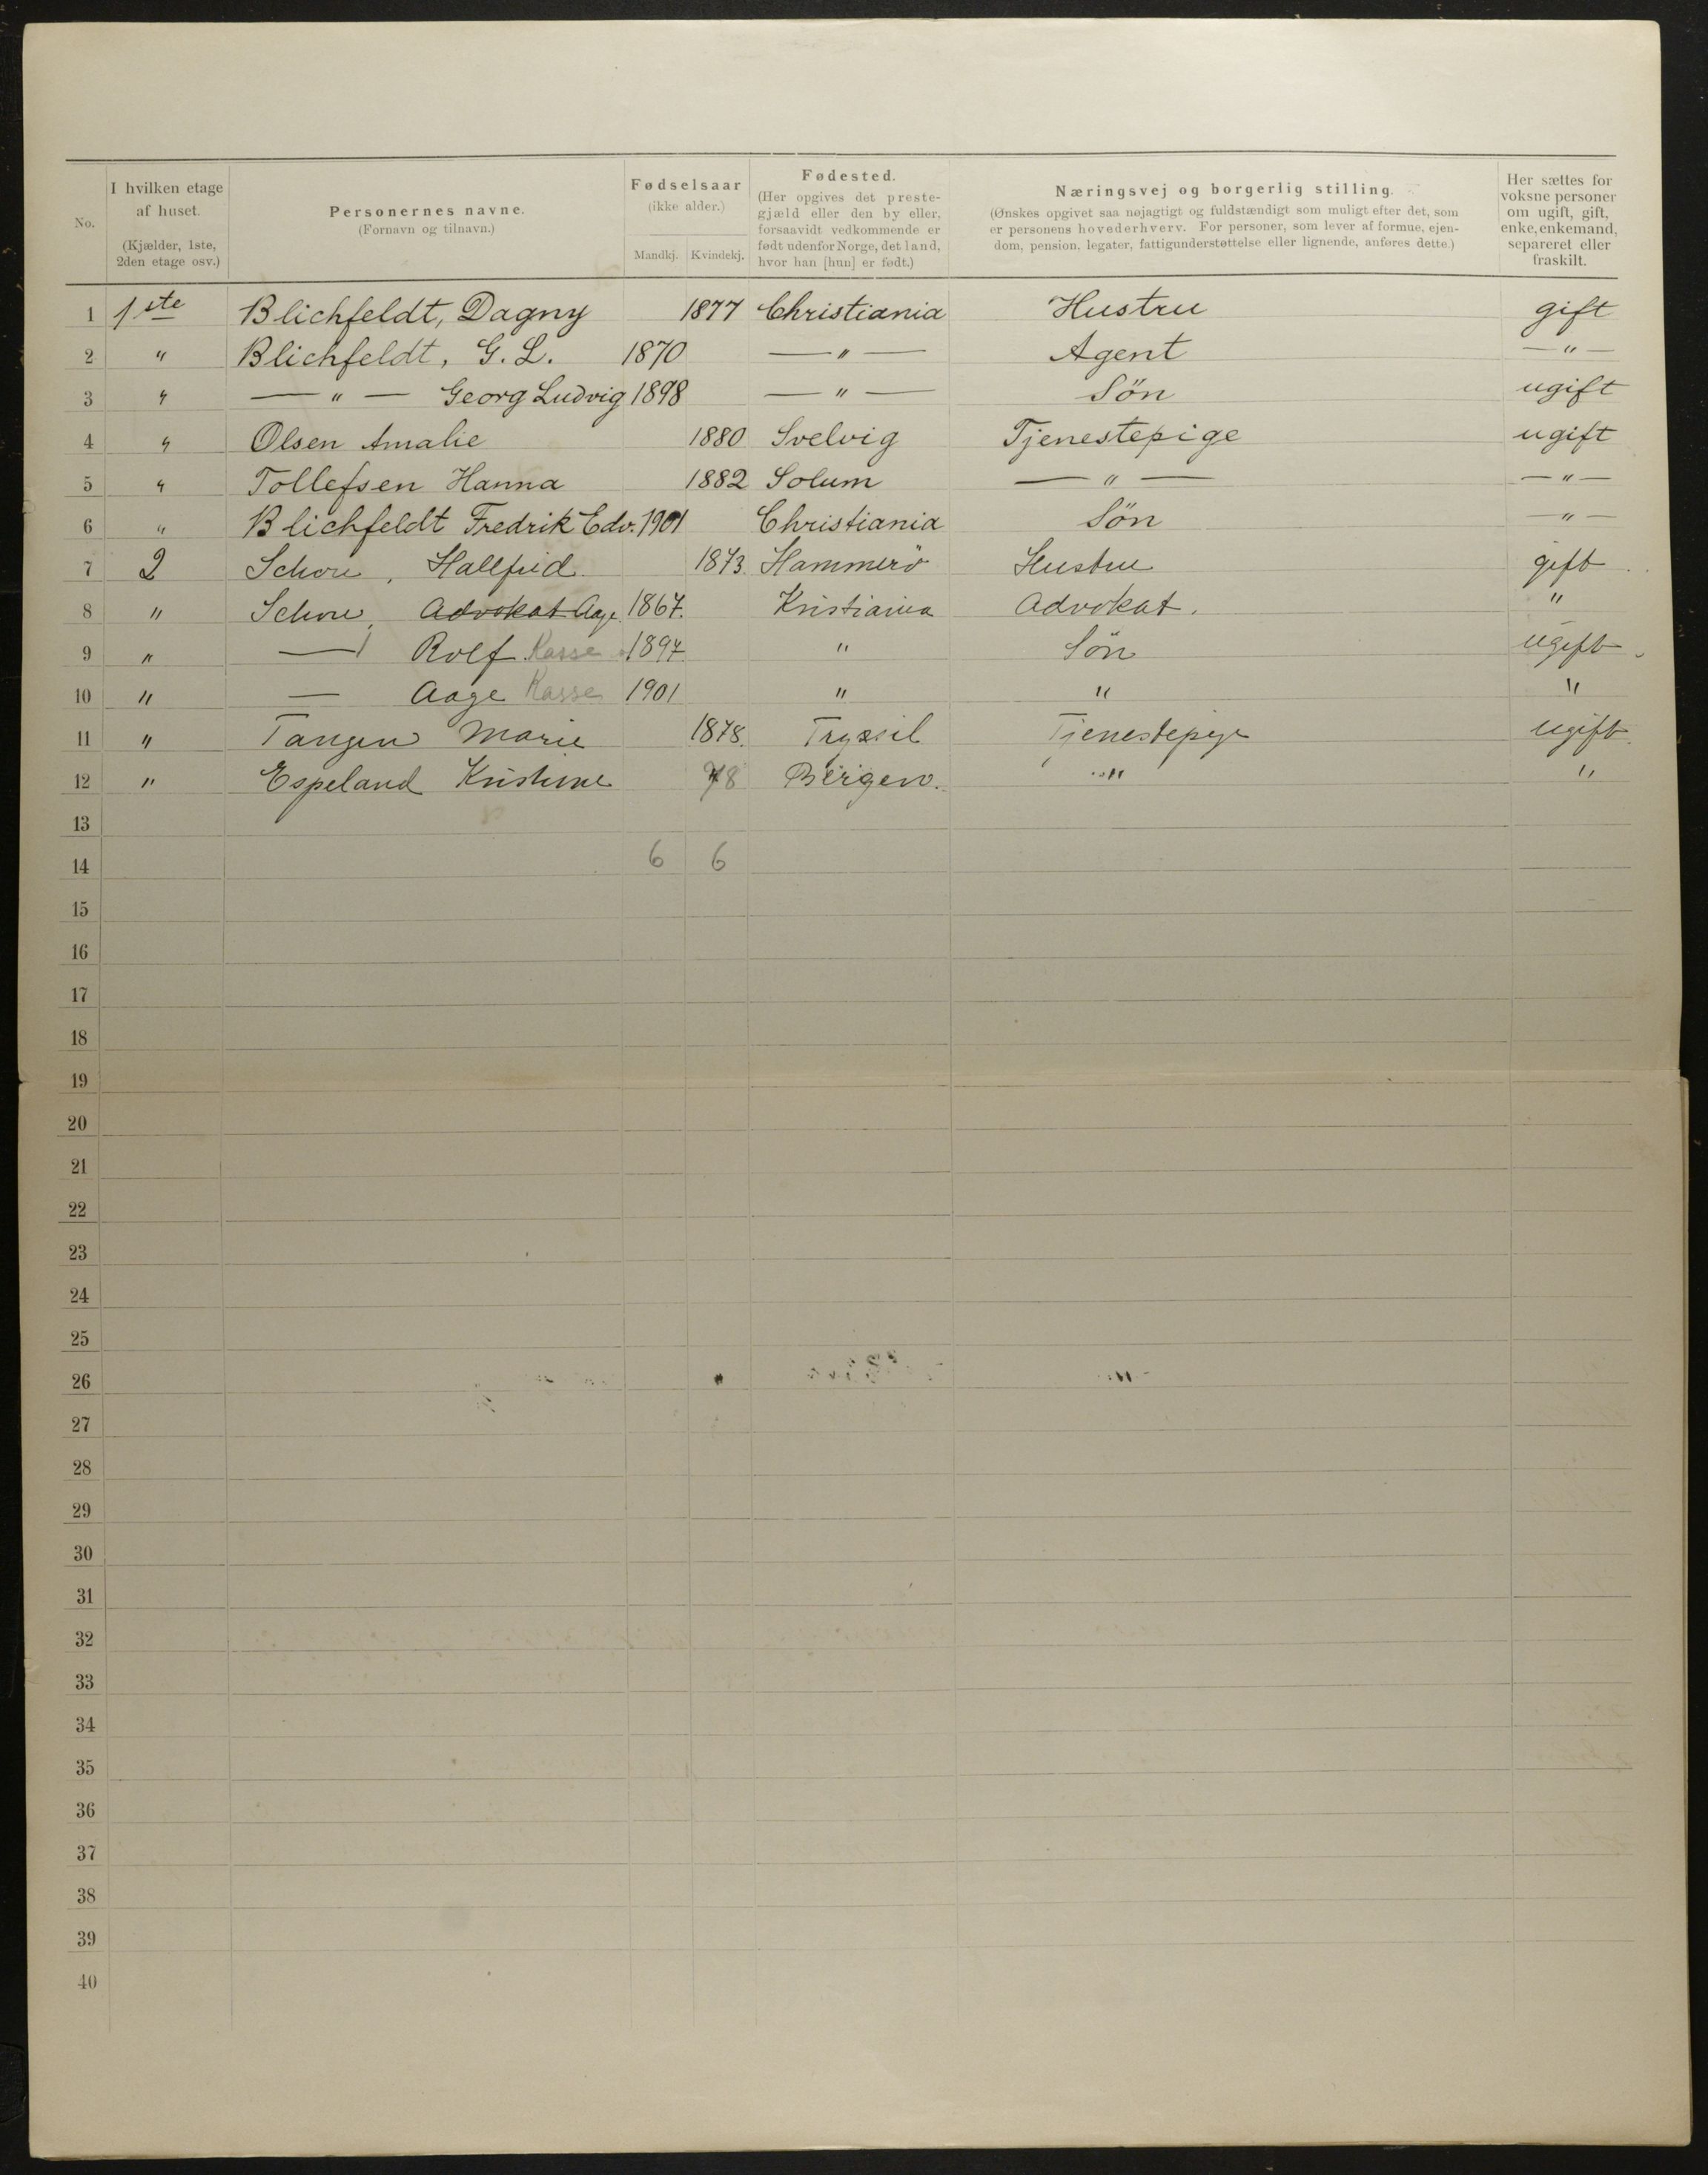 No.
I hvilken etage af huset. (Kjælder, 1ste, 2den etage osv.)
Personernes navne. (Fornavn og tilnavn.)
Fødselsaar (ikke alder.)
Mandkj. Kvindekj.
Fødested. (Her opgives det prestegjæld eller den by eller, forsaavidt vedkommende er født udenfor Norge, det land, hvor han [hun] er født.)
Næringsvej og borgerlig stilling.
(Ønskes opgivet saa nøjagtigt og fuldstændigt som muligt efter det, som er personens hovederhverv. For personer, som lever af formue, ejendom, pension, legater, fattigunderstøttelse eller lignende, anføres dette.)
Her sættes for voksne personer om ugift, gift, enke, enkemand, separeret eller fraskilt.
1 1ste Blichfeldt, Dagny 1877 Christiania Hustru gift
2 " Blichfeldt, G. L. 1870 — " — Agent — " —
3 " — " — Georg Ludvig 1898 — " — Sön ugift
4 " Olsen Amalie 1880 Svelvig Tjenestepige ugift
5 " Tollefsen Hanna 1882 Solum — " — — " —
6 " Blichfeldt Fredrik Edv. 1901 Christiania Sön — " —
7 2 Schou, Hallfrid 1873. Hammerö Hustru gift
8 " Schou, Advokat Aage 1867. Kristiania Advokat. "
9 " — Rolf Kasse 1897 " Sön ugift
10 " — Aage Kasse 1901 " " "
11 " Tangen Marie 1878. Trysil Tjenestepige ugift
12 " Espeland Kristine 78 Bergen. " "
13
14 6 6
15
16
17
18
19
20
21
22
23
24
25
26
27
28
29
30
31
32
33
34
35
36
37
38
39
40